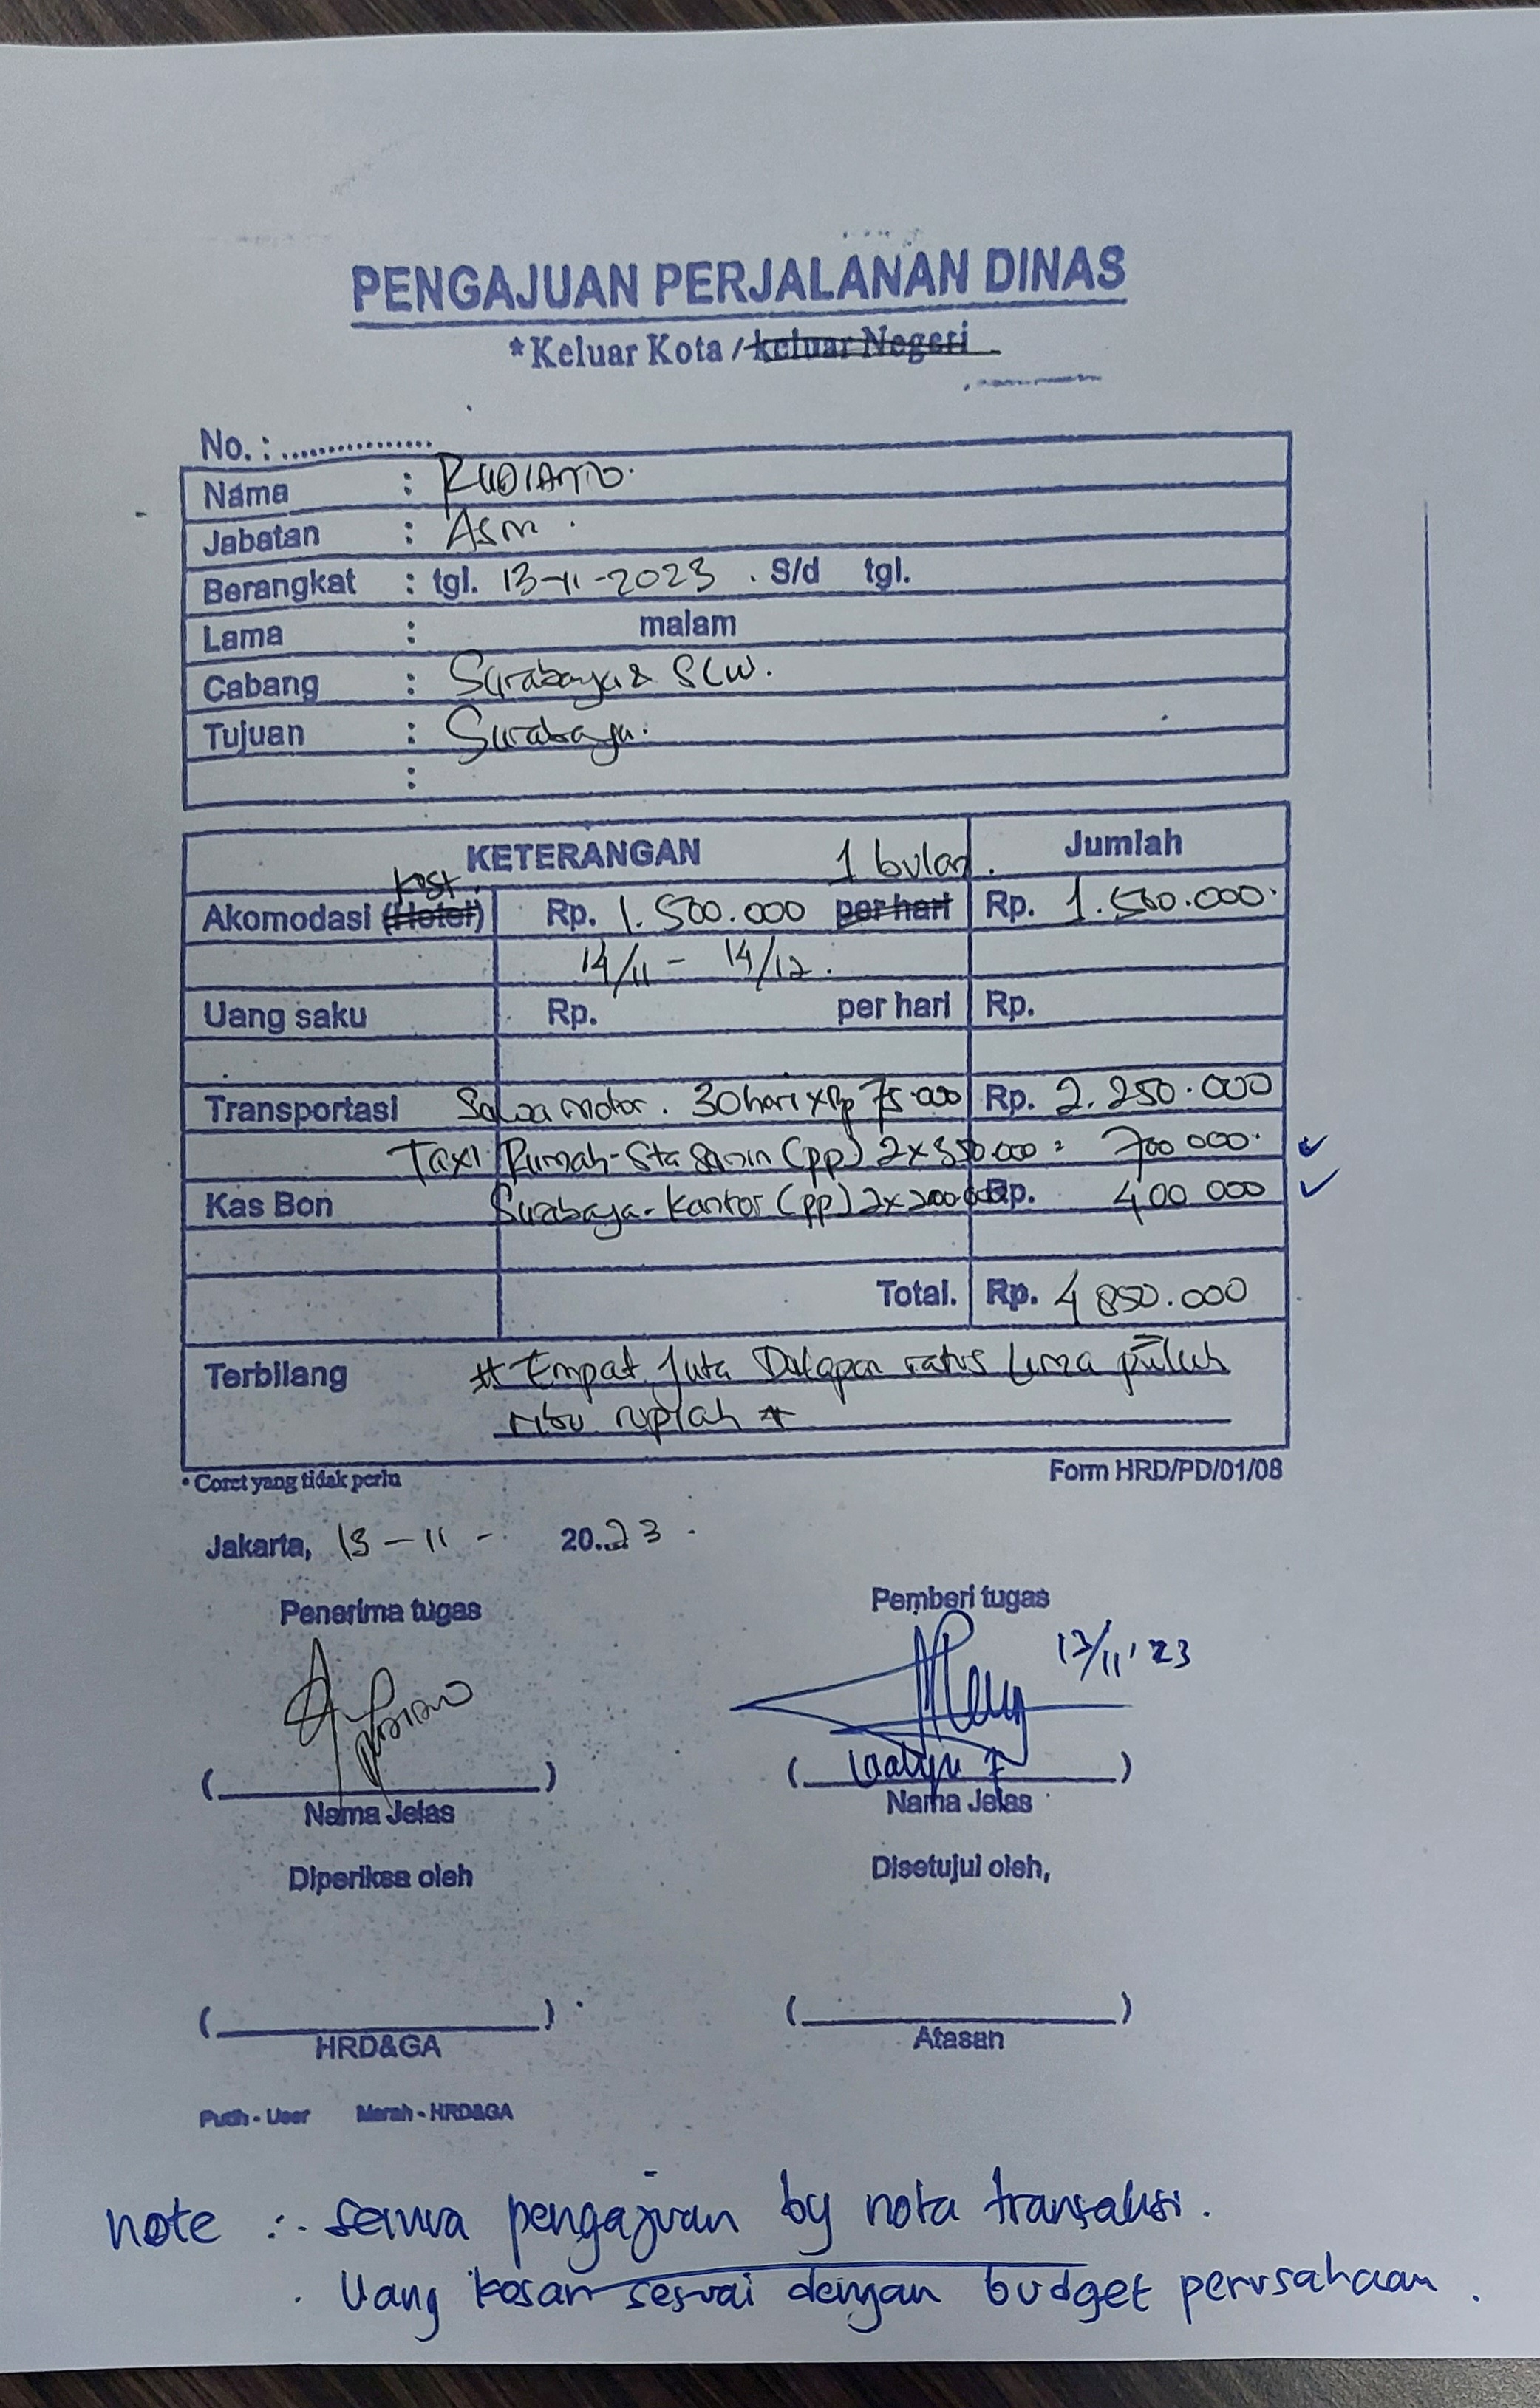 PENGAJUAN PERJALANAN DINAS
*Keluar Kota / keluar Negeri
No. : ................
Nama : RUDIANTO.
Jabatan : ASM.
Berangkat : tgl. 13-11-2023 . S/d tgl.
Lama : malam
Cabang : Surabaya & SLW.
Tujuan : Surabaya.
:
KETERANGAN 1 bulan. Jumlah
Kost
Akomodasi (Hotel) Rp. 1.500.000 per hari Rp. 1.500.000.
14/11 - 14/12.
Uang saku Rp. per hari Rp.
Transportasi Sewa motor. 30 hari x Rp 75.000 Rp. 2.250.000
Taxi Rumah-Sta Senin (pp) 2x350.000 = 700 000. ✓
Kas Bon Surabaya-Kantor (pp) 2x200.000 Rp. 400 000 ✓
Total. Rp. 4 850.000
Terbilang # Empat Juta Delapan ratus Lima puluh
ribu rupiah #
* Coret yang tidak perlu Form HRD/PD/01/08
Jakarta, 13 - 11 - 20.23.
Penerima tugas Pemberi tugas
13/11'23
Wahyu
( ) ( )
Nama Jelas Nama Jelas
Diperiksa oleh Disetujui oleh,
( ) ( )
HRD&GA Atasan
Putih - User Merah - HRD&GA
note :. semua pengajuan by nota transaksi.
. Uang kosan sesuai dengan budget perusahaan.